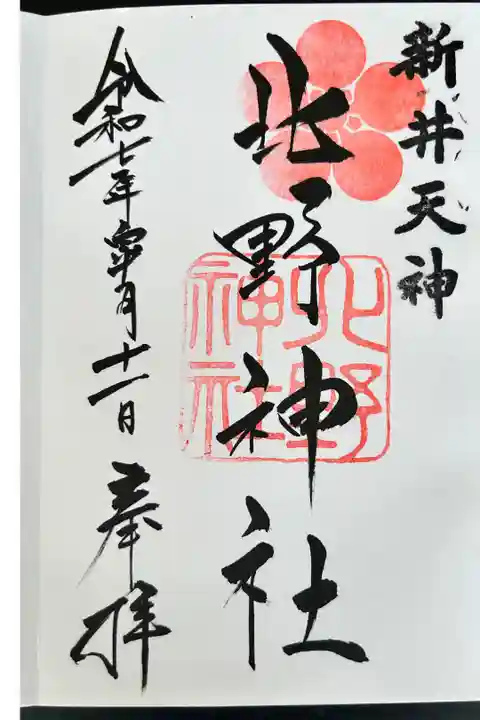 新井天神
北野神社
北野
神社
令和七年皐月十一日 奉拝